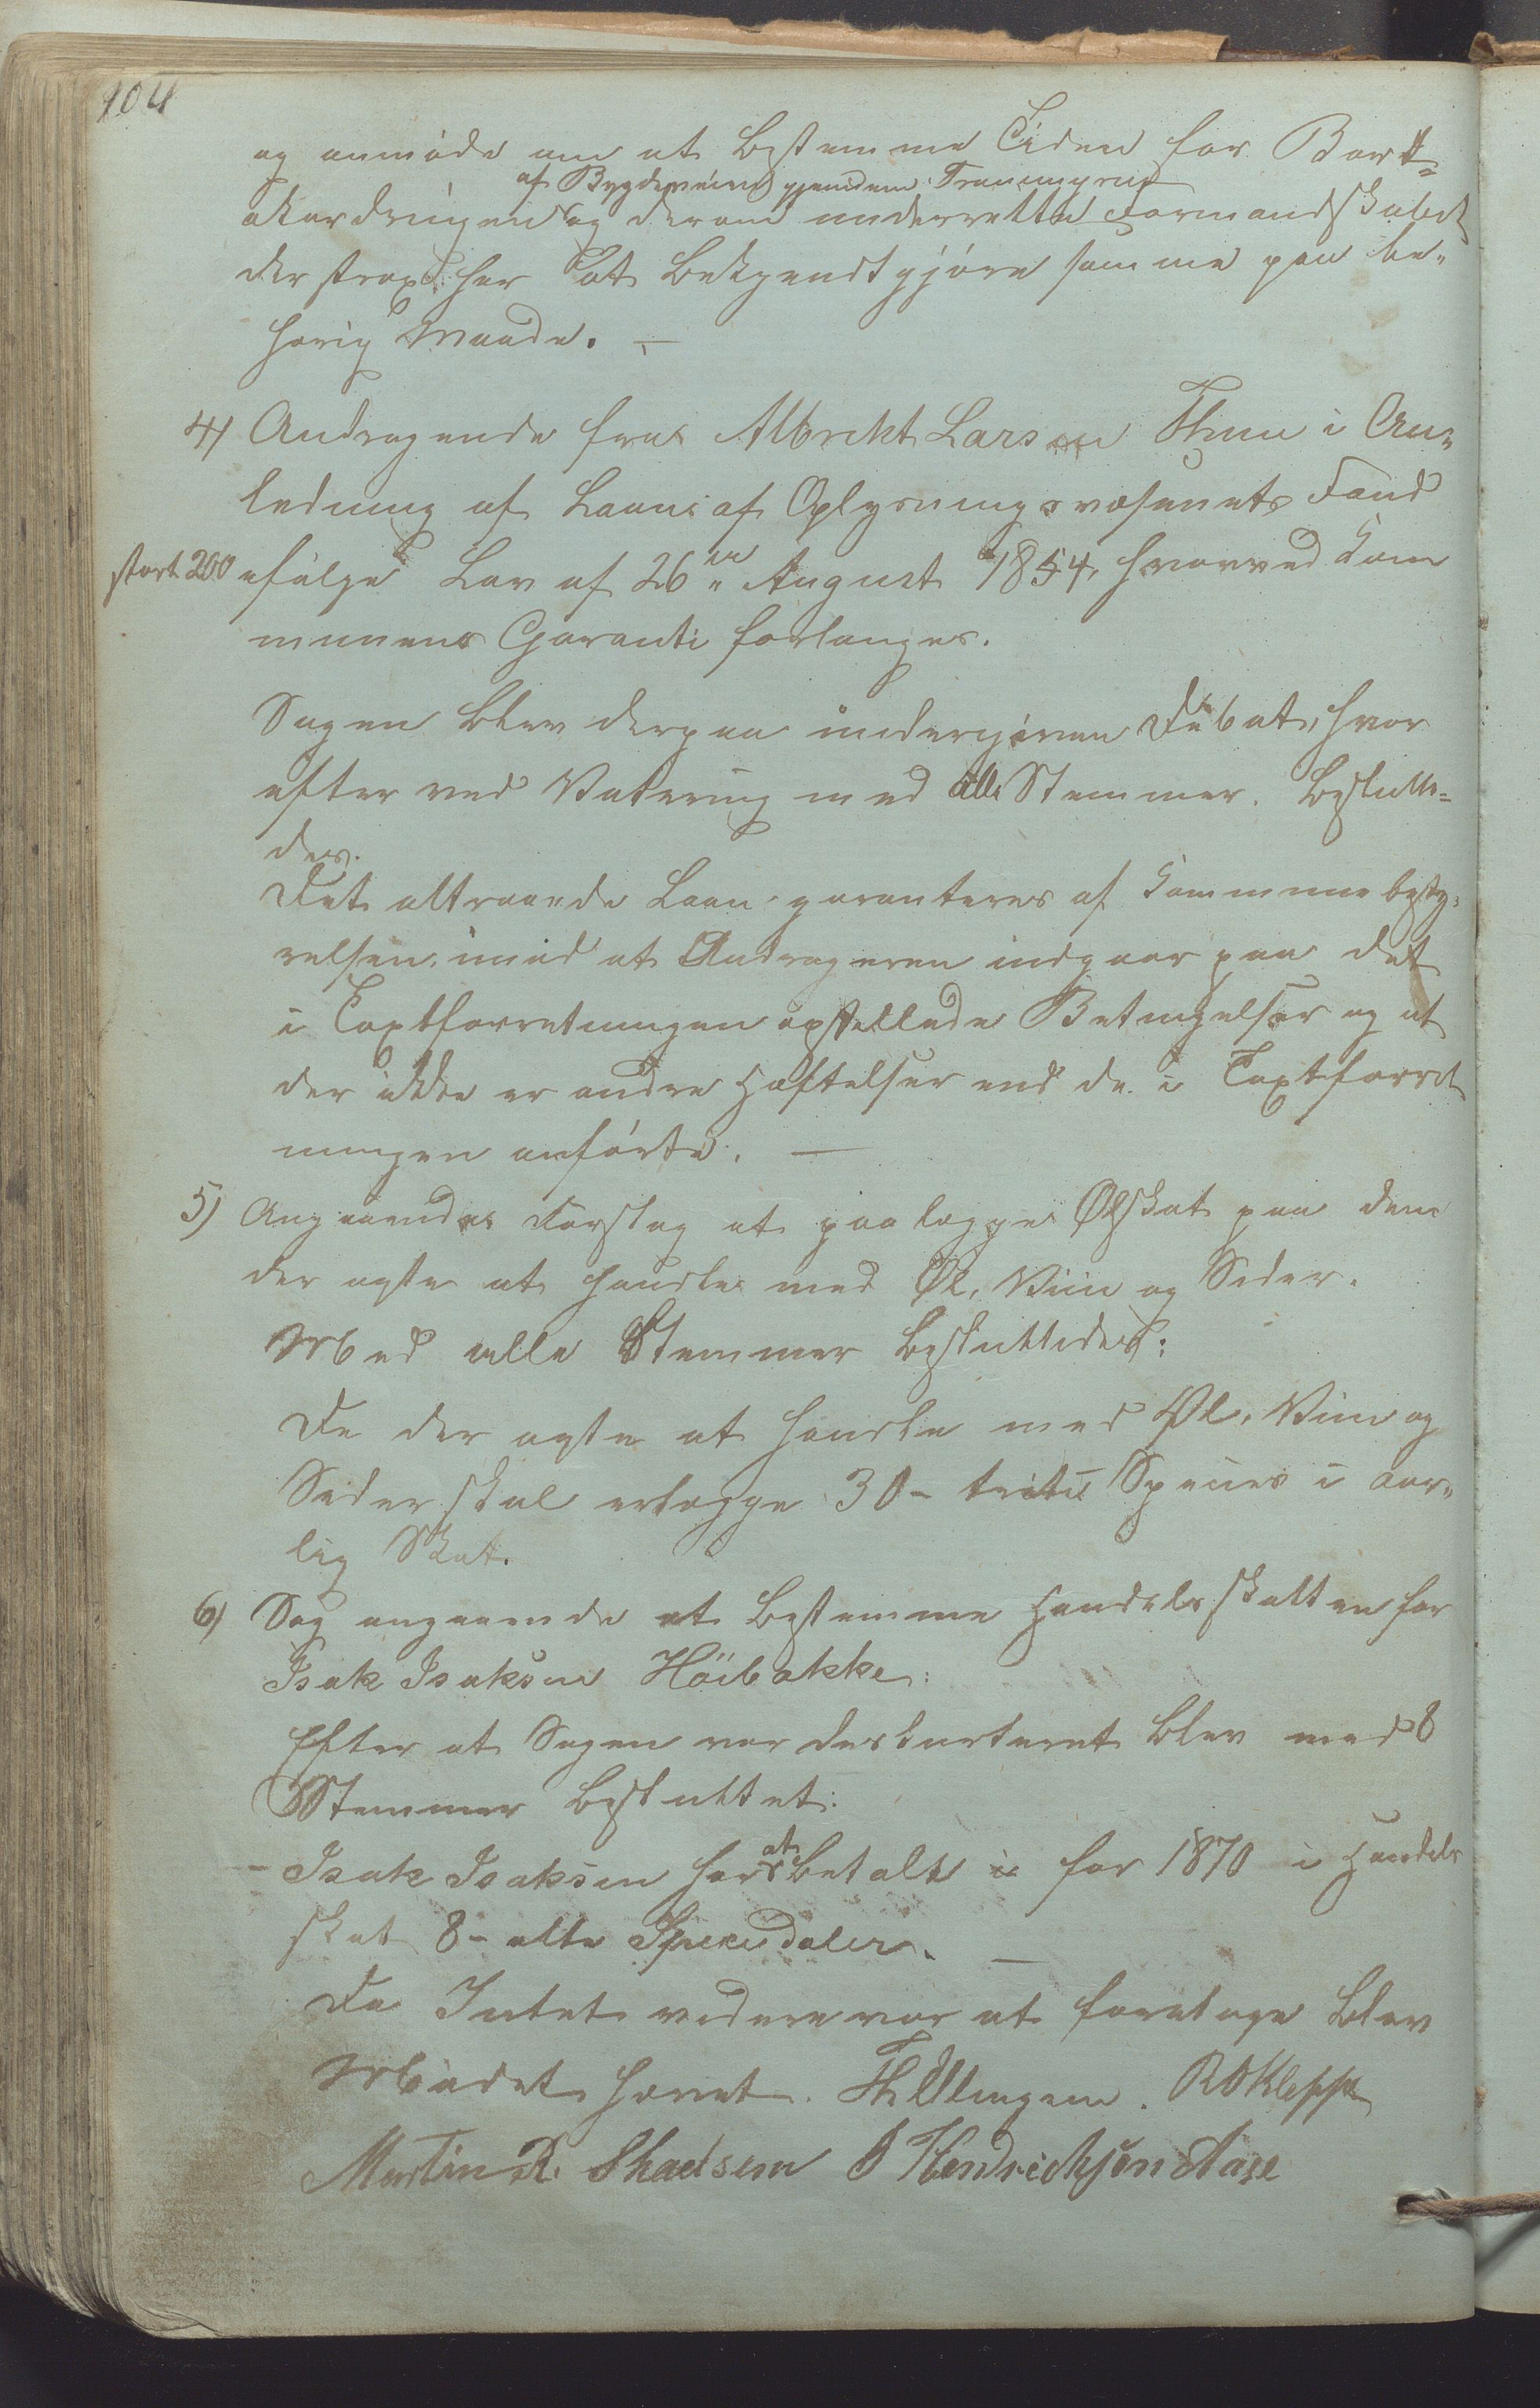 104
og anmode om at bestemme Tiden for Bort-
af Bygdeveien gjennem
akordringen og derom underrette Formandskabet
der strax har at bekjendtgjøre samme paa be-
hørig Maade. —
4) Andragende fra Albrekt Larsen Thu i An-
ledning af Laan af Oplysningsvæsenets Fond
stort 200 efølge Lov af 26de August 1854, hvorved Kom
munens Garanti forlanges.
Sagen blev derpaa undergiven Debat, hvor
efter ved Votering med alle Stemmer. Beslutte-
des.
Det attraaede Laan garanteres af Kommunebesty-
relsen imod at Andrageren indgaar paa det
i Taxtforretningen opstellede Betingelser og at
der ikke er andre Hæftelser end de i Taxtforret
ningen anførte. —
5) Angaaende Forslag at paalægge Ølskat paa dem
der agte at handle med Øl, Viin og Sider.
Med alle Stemmer besluttedes:
De der agte at handle med Øl, Viin og
Sider skal erlægge 30 - treti Species i aar-
lig Skat.
6) Sag angaaende at bestemme Handelsskatten for
Isak Isaksen Höibakke:
Efter at Sagen var deskurteret blev med 8
Stemmer besluttet:
- Isak Isaksen har at betale i for 1870 i Handels
skat 8 - otte Speciedaler. —
Da Intet videre var at foretage blev
Mødet hævet. Th Ullingem. RO Klepp
Martin R. Skadsem O Hendrichsen Aase